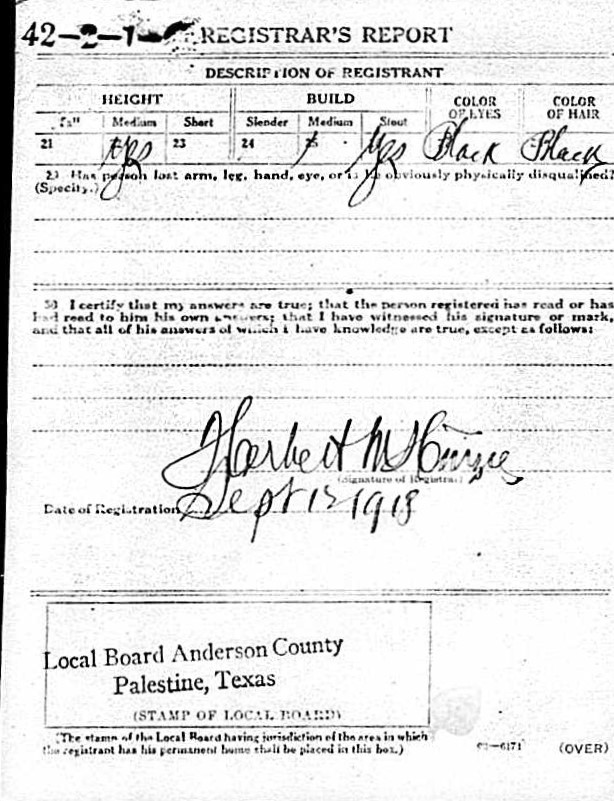 42-2-1- REGISTRAR'S REPORT
DESCRIPTION OF REGISTRANT
HEIGHT BUILD COLOR OF EYES COLOR OF HAIR
Tall Medium Short Slender Medium Stout
21 Yes 23 24 25 Yes Black Black
29 Has person lost arm, leg, hand, eye, or is he obviously physically disqualified?
(Specify.)
30 I certify that my answers are true; that the person registered has read or has
had read to him his own answers; that I have witnessed his signature or mark,
and that all of his answers of which I have knowledge are true, except as follows:
Herbert
(Signature of Registrar)
Date of Registration Sept 12 1918
Local Board Anderson County
Palestine, Texas
(STAMP OF LOCAL BOARD)
(The stamp of the Local Board having jurisdiction of the area in which
the registrant has his permanent home shall be placed in this box.)
03-6171 (OVER)